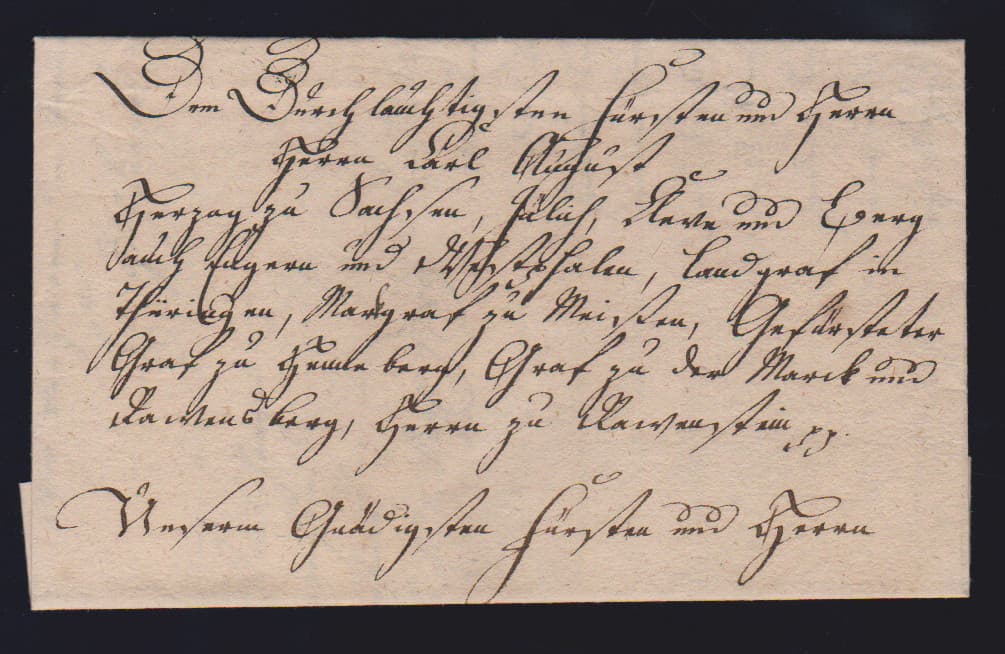 Dem Durchlauchtigsten Fürsten und Herrn
Herrn Carl August
Herzog zu Sachsen, Jülich, Cleve und Berg
auch Engern und Westphalen, Landgraf in
Thüringen, Margraf zu Meißen, Gefürsteter
Graf zu Henneberg, Graf zu der Marck und
Rawensberg, Herrn zu Rawenstein pp.
Unserm Gnädigsten Fürsten und Herrn